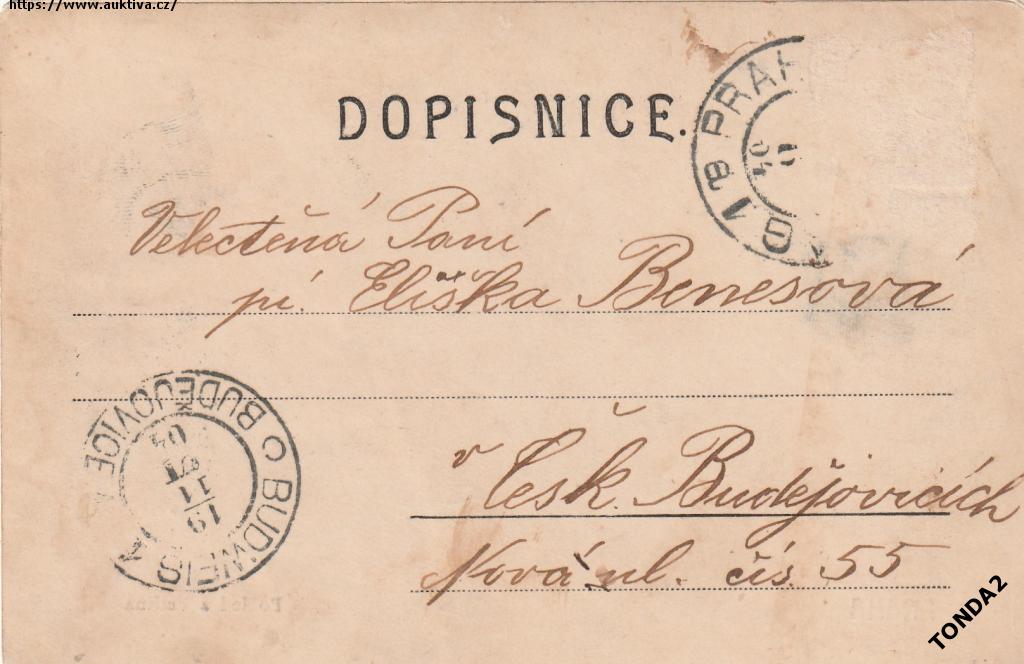 https://www.auktiva.cz/
DOPISNICE.
Velectěná Paní
pí. Eliška Benesová
v Česk. Budějovicích
Nová ul. čís. 55
BUDĚJOVICE
BUDWEIS
19
11
04
04
TONDA2